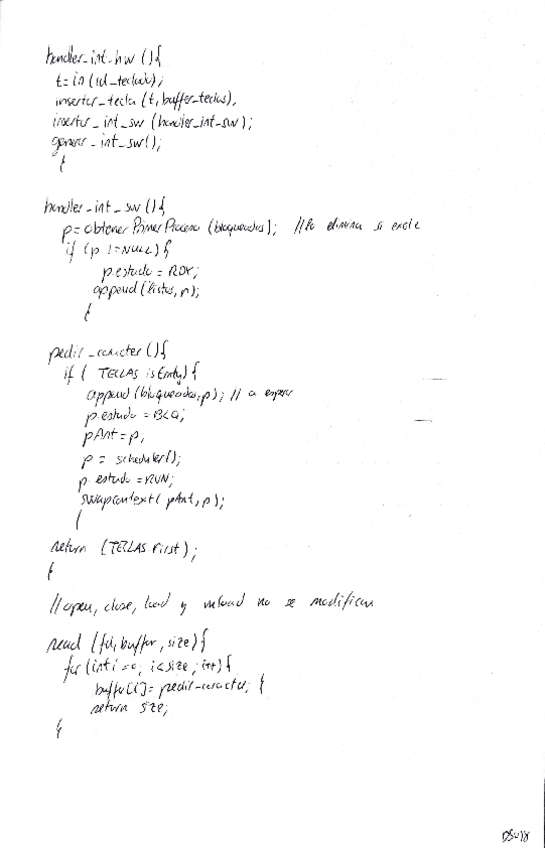 handler_int_hw () {
t = in (id_teclado);
insertar_tecla (t, buffer_teclas),
insertar_int_sw (handler_int_sw);
generar_int_sw();
}
handler_int_sw () {
p = obtenerPrimerProceso (bloqueados); // lo elimina si existe
if (p != NULL) {
p.estado = RDY;
append (listos, p);
}
pedir_caracter () {
if ( TECLAS isEmty) {
append (bloqueados, p); // a esperar
p.estado = BLQ;
pAnt = p,
p = scheduler();
p.estado = RUN;
swapcontext ( pAnt, p);
}
return (TECLAS First);
}
// open, close, load y unload no se modifican
read (fd, buffer, size) {
for (int i = 0; i < size; i++) {
buffer[i] = pedir_caracter; }
return size;
}